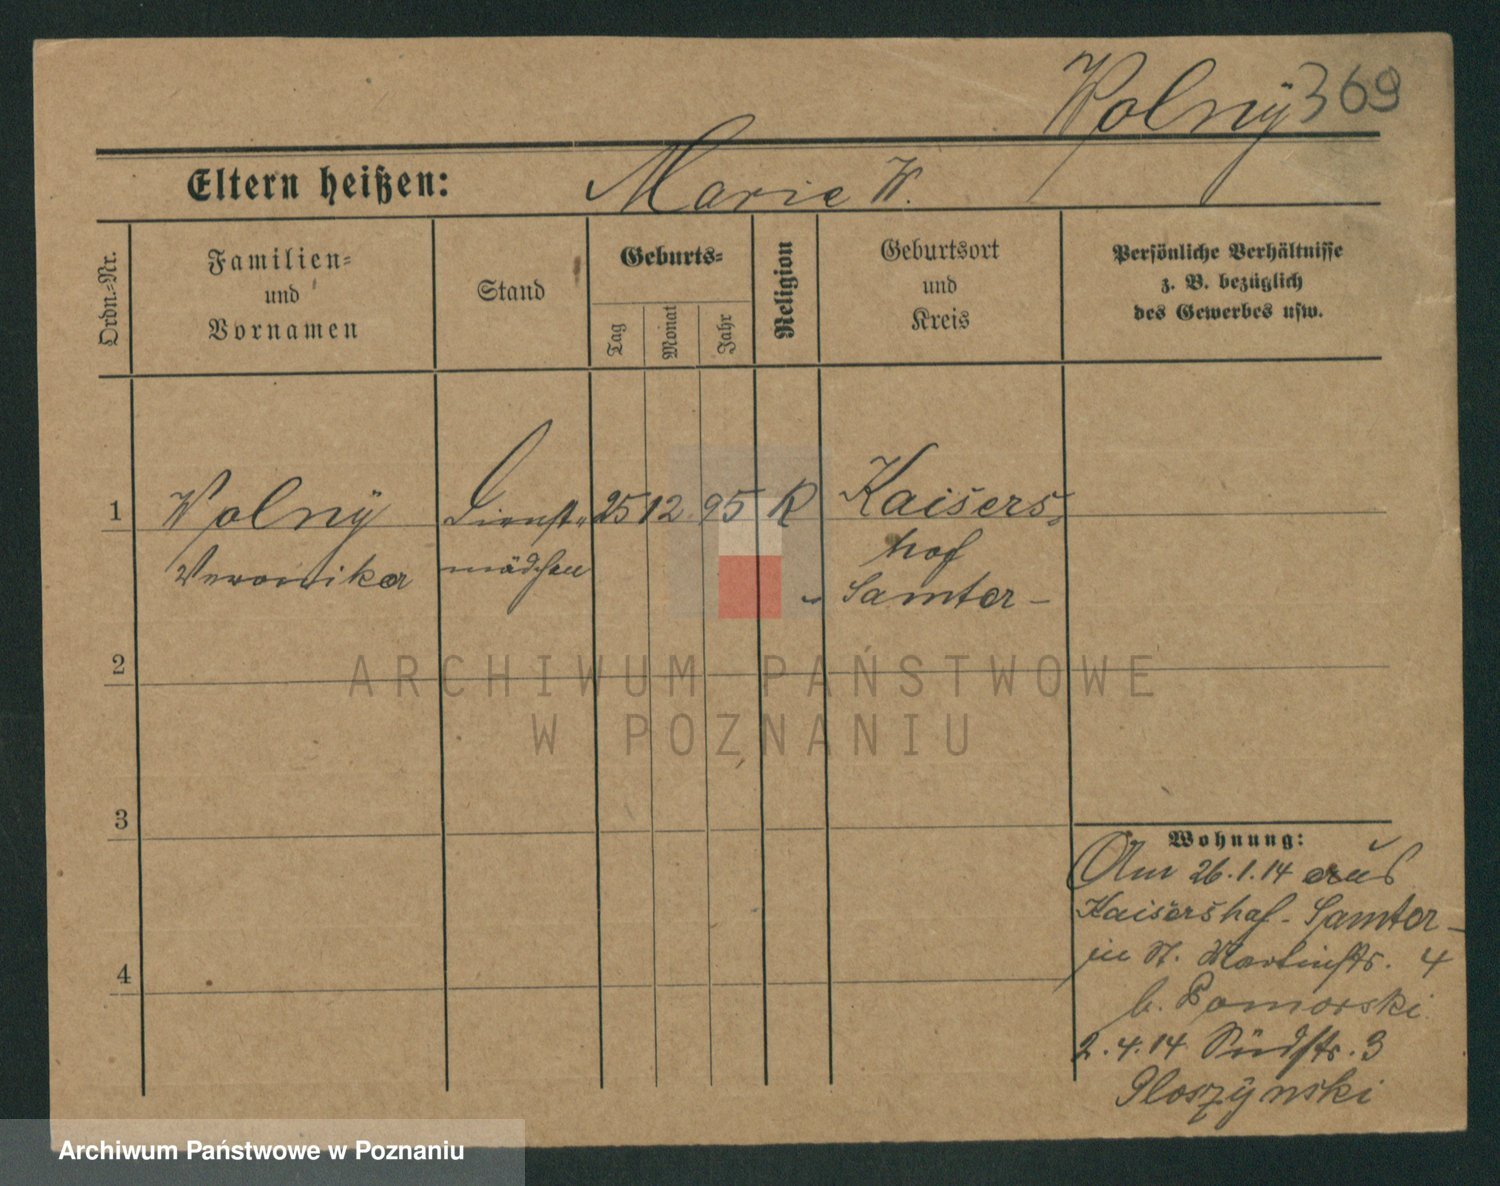 Wolnÿ 369
Eltern heißen: Marie W.
Ordn.-Nr.
Familien-
und
Vornamen
Stand
Geburts-
Tag
Monat
Jahr
Religion
Geburtsort
und
Kreis
Persönliche Verhältnisse
z. B. bezüglich
des Gewerbes usw.
1 Wolnÿ Dienst- 25 12 95 K Kaisers-
Veronika mädchen hof
Samter -
2
3
4
Wohnung:
Am 26.1.14 aus
Kaisershof - Samter -
in St. Martinstr. 4
b. Pomorski
2.4.14 Südstr. 3
Ploszÿnski
ARCHIWUM PAŃSTWOWE
W POZNANIU
Archiwum Państwowe w Poznaniu